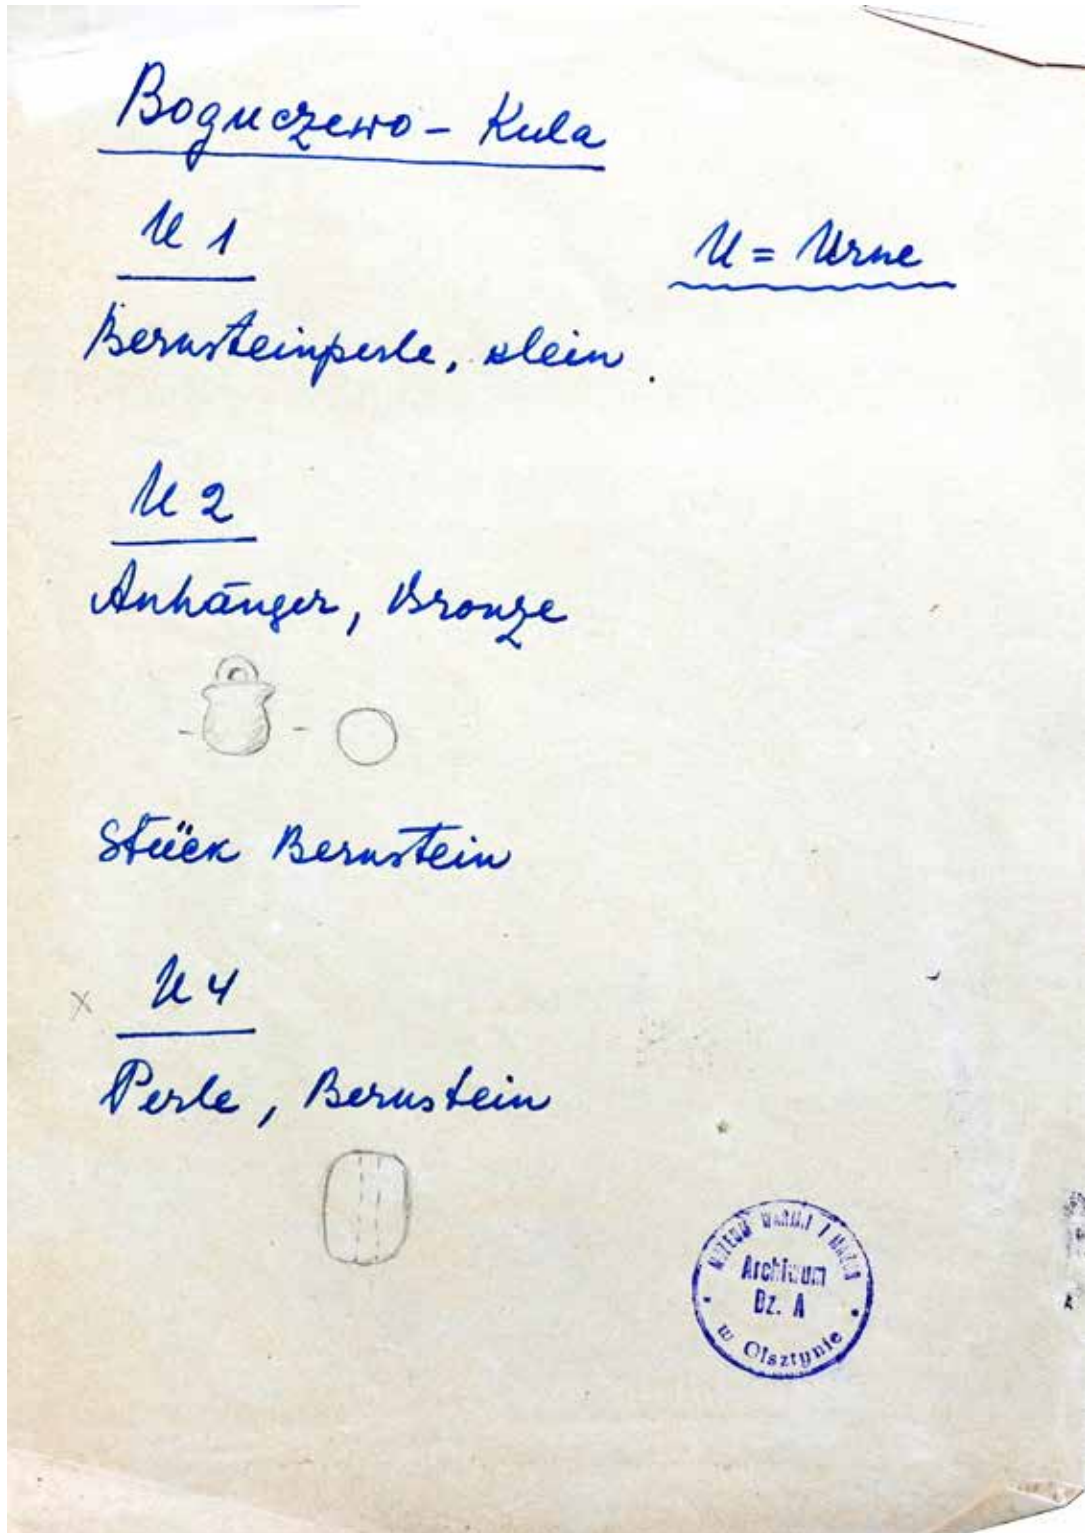 Boguczewo - Kula
U 1
U = Urne
Bernsteinperle, klein.
U 2
Anhänger, Bronze
Stück Bernstein
x U 4
Perle, Bernstein
MUZEUM WARMII I MAZUR
Archiwum
Dz. A
w Olsztynie